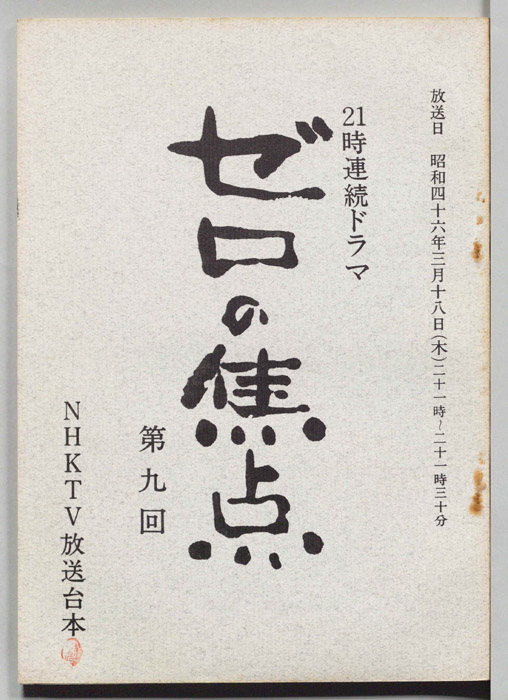 放送日 昭和四十六年三月十八日(木)二十一時~二十一時三十分
21時連続ドラマ
ゼロの焦点
第九回
NHKTV放送台本